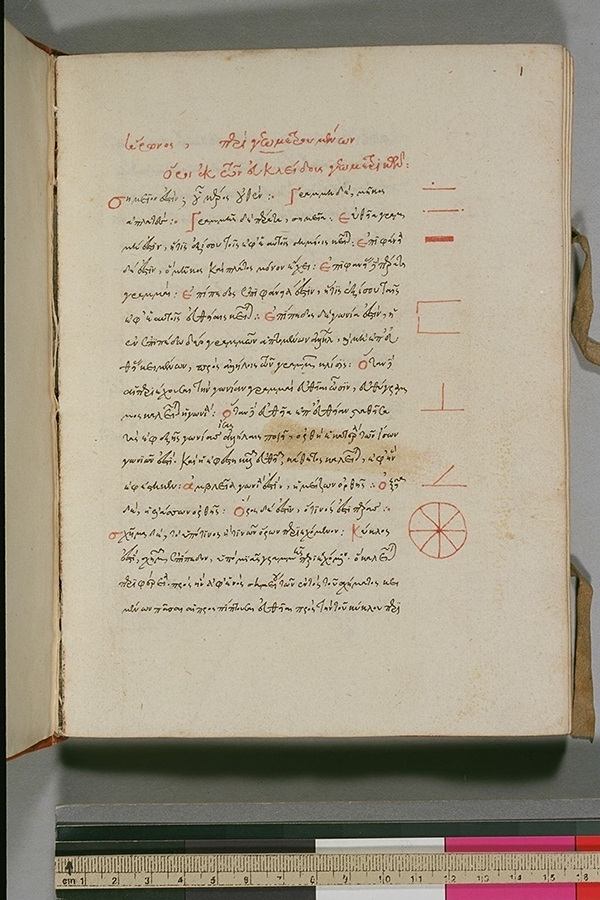 1
ἥρωνος, περὶ γεωμετρουμένων
ὅροι ἐκ τῶν εὐκλείδους γεωμετρικῶν:
Σημεῖόν ἐστιν, οὗ μέρος οὐθέν: Γραμμὴ δὲ, μῆκος
ἀπλατὲς: Γραμμῆς δὲ πέρατα, σημεῖα: Εὐθεῖα γραμ
μή ἐστιν, ἥτις ἐξίσου τοῖς ἐφ' ἑαυτῆς σημείοις κεῖται: Ἐπιφάνειά
δέ ἐστιν, ὃ μῆκος καὶ πλάτος μόνον ἔχει: Ἐπιφανείας δὲ πέρατα
γραμμαί: Ἐπίπεδος ἐπιφάνειά ἐστιν, ἥτις ἐξίσου ταῖς
ἐφ' ἑαυτῆς εὐθείαις κεῖται: Ἐπίπεδος δὲ γωνία ἐστὶν, ἡ
ἐν ἐπιπέδῳ δύο γραμμῶν ἁπτομένων ἀλλήλων, καὶ μὴ ἐπ' εὐ
θείας κειμένων, πρὸς ἀλλήλας τῶν γραμμῶν κλίσις: Ὅταν δὲ
αἱ περιέχουσαι τὴν γωνίαν γραμμαὶ εὐθεῖαι ὦσιν, εὐθύγραμ
μος καλεῖται ἡ γωνία: Ὅταν δὲ εὐθεῖα ἐπ' εὐθεῖαν σταθεῖσα
ἴσας
τὰς ἐφεξῆς γωνίας ἀλλήλαις ποιῇ, ὀρθὴ ἑκατέρα τῶν ἴσων
γωνιῶν ἐστι. καὶ ἡ ἐφεστηκυῖα εὐθεῖα κάθετος καλεῖται, ἐφ' ἣν
ἐφέστηκεν: Ἀμβλεῖα γωνία ἐστὶν, ἡ μείζων ὀρθῆς: Ὀξεῖα
δὲ, ἡ ἐλάσσων ὀρθῆς: Ὅρος δέ ἐστιν, ὅ τινός ἐστι πέρας:
Σχῆμα δὲ, τὸ ὑπό τινος ἤ τινων ὅρων περιεχόμενον: Κύκλος
ἐστὶ, σχῆμα ἐπίπεδον, ὑπὸ μιᾶς γραμμῆς περιεχόμενον. ὃ καλεῖται
περιφέρεια. πρὸς ἣν ἀφ' ἑνὸς σημείου τῶν ἐντὸς τοῦ σχήματος κει
μένων πᾶσαι αἱ προσπίπτουσαι εὐθεῖαι πρὸς τὴν τοῦ κύκλου περι
cm 1 2 3 4 5 6 7 8 9 10 11 12 13 14 15 16 17 18